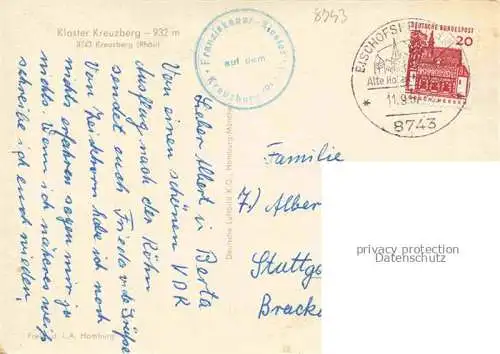 8743
Kloster Kreuzberg – 932 m
8743 Kreuzberg (Rhön)
Franziskaner-Kloster
auf dem
Kreuzberg
BISCHOFSHEIM
Alte
11.9.
8743
DEUTSCHE BUNDESPOST
20
Lieber Albert u Berta
Von einen schönen VDK
Ausflug nach der Röhn
sendet euch Frieda viele Grüße
Von habe ich noch
nichts erfahren sagen mir ja
nichts. Wenn ich näheres weiß
schreibe ich euch wieder.
Deutsche Luftbild K.G., Hamburg
Freig. d. L.A. Hamburg
Familie
Alber
Stuttg
Brack
privacy protection
Datenschutz